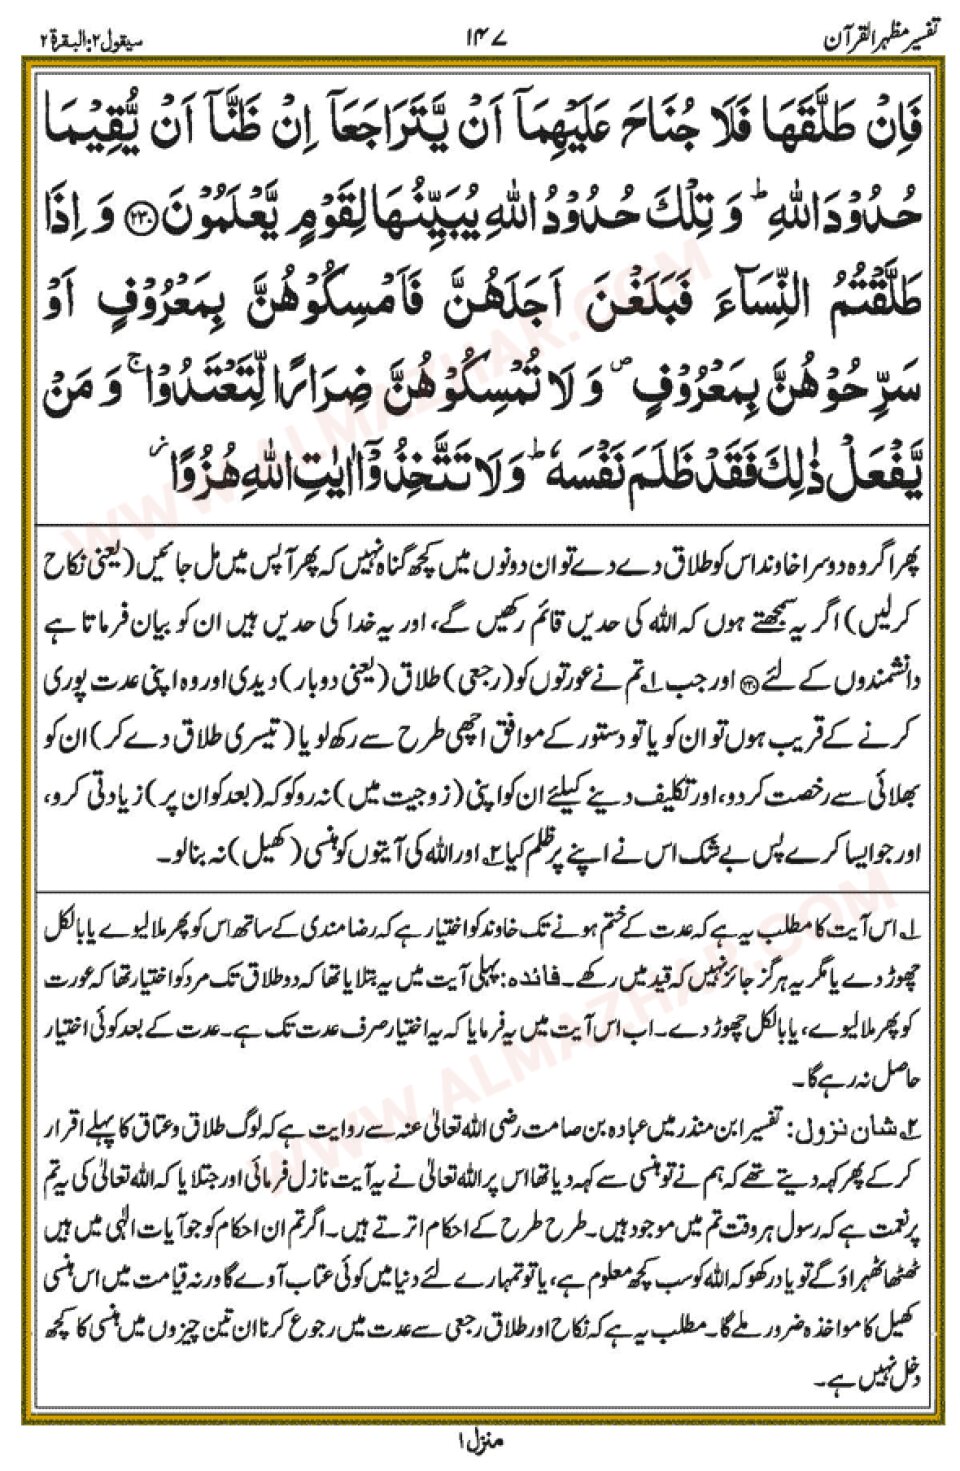 تفسیر مظہرالقرآن ۱۴۷ سیقول۲،البقرۃ۲
فَاِنْ طَلَّقَهَا فَلَا جُنَاحَ عَلَيْهِمَآ اَنْ يَّتَرَاجَعَآ اِنْ ظَنَّآ اَنْ يُّقِيْمَا
حُدُوْدَ اللّٰهِ ؕ وَ تِلْكَ حُدُوْدُ اللّٰهِ يُبَيِّنُهَا لِقَوْمٍ يَّعْلَمُوْنَ ﴿۲۳۰﴾ وَ اِذَا
طَلَّقْتُمُ النِّسَآءَ فَبَلَغْنَ اَجَلَهُنَّ فَاَمْسِكُوْهُنَّ بِمَعْرُوْفٍ اَوْ
سَرِّحُوْهُنَّ بِمَعْرُوْفٍ ۪ وَ لَا تُمْسِكُوْهُنَّ ضِرَارًا لِّتَعْتَدُوْا ۚ وَ مَنْ
يَّفْعَلْ ذٰلِكَ فَقَدْ ظَلَمَ نَفْسَهٗ ؕ وَ لَا تَتَّخِذُوْٓا اٰيٰتِ اللّٰهِ هُزُوًا ؗ
پھر اگر وہ دوسرا خاوند اس کو طلاق دے دے تو ان دونوں میں کچھ گناہ نہیں کہ پھر آپس میں مل جائیں (یعنی نکاح
کرلیں) اگر یہ سمجھتے ہوں کہ اللہ کی حدیں قائم رکھیں گے، اور یہ خدا کی حدیں ہیں ان کو بیان فرماتا ہے
دانشمندوں کے لئے ﴿۲۳۰﴾ اور جب ۱؎ تم نے عورتوں کو (رجعی) طلاق (یعنی دوبار) دیدی اور وہ اپنی عدت پوری
کرنے کے قریب ہوں تو ان کو یا تو دستور کے موافق اچھی طرح سے رکھ لو یا (تیسری طلاق دے کر) ان کو
بھلائی سے رخصت کردو، اور تکلیف دینے کیلئے ان کو اپنی (زوجیت میں) نہ روکو کہ (بعد کو ان پر) زیادتی کرو،
اور جو ایسا کرے پس بے شک اس نے اپنے پر ظلم کیا ۲؎ اور اللہ کی آیتوں کو ہنسی (کھیل) نہ بنالو۔
۱؎ اس آیت کا مطلب یہ ہے کہ عدت کے ختم ہونے تک خاوند کو اختیار ہے کہ رضا مندی کے ساتھ اس کو پھر ملا لیوے یا بالکل
چھوڑ دے یا مگر یہ ہرگز جائز نہیں کہ قید میں رکھے۔ فائدہ: پہلی آیت میں یہ بتلایا تھا کہ دو طلاق تک مرد کو اختیار تھا کہ عورت
کو پھر ملا لیوے، یا بالکل چھوڑ دے۔ اب اس آیت میں یہ فرمایا کہ یہ اختیار صرف عدت تک ہے۔ عدت کے بعد کوئی اختیار
حاصل نہ رہے گا۔
۲؎ شان نزول: تفسیر ابن منذر میں عبادہ بن صامت رضی اللہ تعالیٰ عنہ سے روایت ہے کہ لوگ طلاق و عتاق کا پہلے اقرار
کر کے پھر کہہ دیتے تھے کہ ہم نے تو ہنسی سے کہہ دیا تھا اس پر اللہ تعالیٰ نے یہ آیت نازل فرمائی اور جتلایا کہ اللہ تعالیٰ کی یہ تم
پر نعمت ہے کہ رسول ہر وقت تم میں موجود ہیں۔ طرح طرح کے احکام اترتے ہیں۔ اگر تم ان احکام کو جو آیات الٰہی میں ہیں
ٹھٹھا ٹھہراؤ گے تو یاد رکھو کہ اللہ کو سب کچھ معلوم ہے، یا تو تمہارے لئے دنیا میں کوئی عتاب آوے گا ورنہ قیامت میں اس ہنسی
کھیل کا مواخذہ ضرور ملے گا۔ مطلب یہ ہے کہ نکاح اور طلاق رجعی سے عدت میں رجوع کرنا ان تین چیزوں میں ہنسی کا کچھ
دخل نہیں ہے۔
منزل۱
WWW.ALMAZHAR.COM
WWW.ALMAZHAR.COM